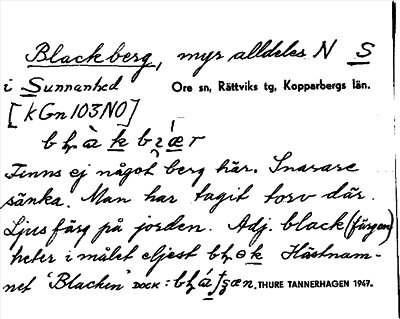 Blackberg, myr alldeles N S
i Sunnanhed Ore sn, Rättviks tg, Kopparbergs län.
[kGn103NO]
Finns ej något berg här. Snarare
sänka. Man har tagit torv där.
Ljus färg på jorden. Adj. black (färgen)
heter i målet eljest Hästnam-
net 'Blacken' DOCK: THURE TANNERHAGEN 1947.